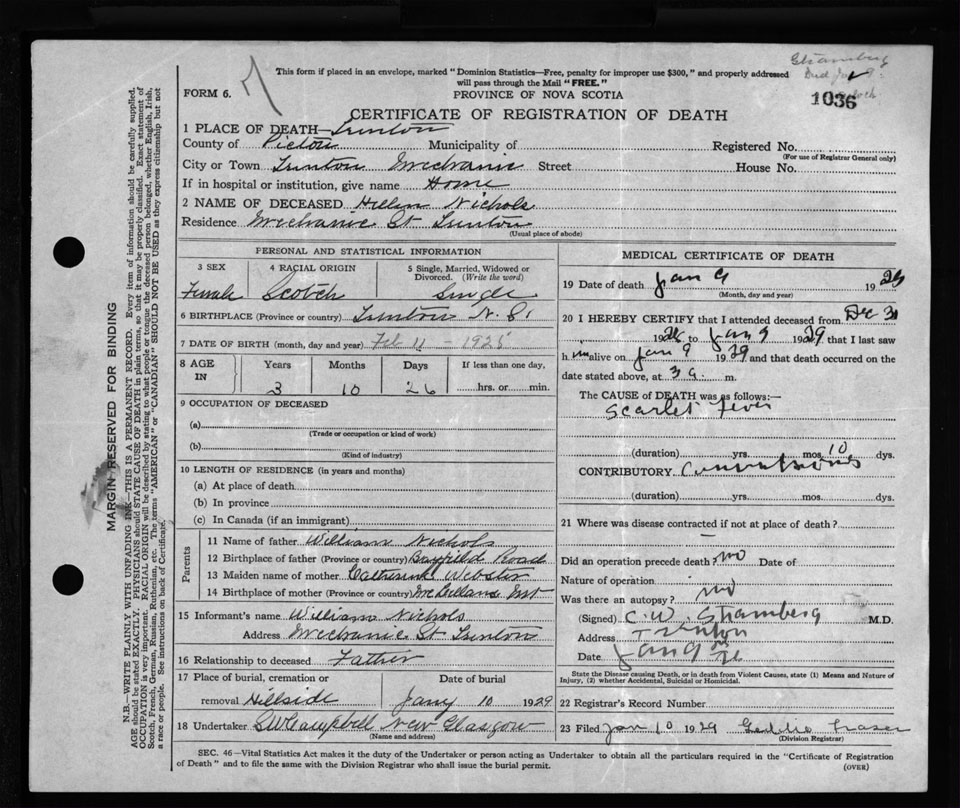 This form if placed in an envelope, marked "Dominion Statistics—Free, penalty for improper use $300," and properly addressed
will pass through the Mail "FREE."
FORM 6.
PROVINCE OF NOVA SCOTIA
1036
CERTIFICATE OF REGISTRATION OF DEATH
1 PLACE OF DEATH— Trenton
County of Pictou Municipality of Registered No.
(For use of Registrar General only)
City or Town Trenton Mechanic Street House No.
If in hospital or institution, give name Home
2 NAME OF DECEASED Helen Nichols
Residence Mechanic St Trenton
(Usual place of abode)
PERSONAL AND STATISTICAL INFORMATION
3 SEX 4 RACIAL ORIGIN 5 Single, Married, Widowed or Divorced. (Write the word)
Female Scotch Single
6 BIRTHPLACE (Province or country) Trenton N.S.
7 DATE OF BIRTH (month, day and year) Feb 11 - 1925
8 AGE IN Years Months Days If less than one day,
3 10 26 hrs. or min.
9 OCCUPATION OF DECEASED
(a)
(Trade or occupation or kind of work)
(b)
(Kind of industry)
10 LENGTH OF RESIDENCE (in years and months)
(a) At place of death
(b) In province
(c) In Canada (if an immigrant)
Parents
11 Name of father William Nichols
12 Birthplace of father (Province or country) Bayfield Road
13 Maiden name of mother Catherine Webster
14 Birthplace of mother (Province or country) McLellans Mt
15 Informant's name William Nichols
Address Mechanic St Trenton
16 Relationship to deceased Father
17 Place of burial, cremation or removal Hillside Date of burial Jany 10 1929
18 Undertaker Campbell New Glasgow
(Name and address)
MEDICAL CERTIFICATE OF DEATH
19 Date of death Jan 9 1929
(Month, day and year)
20 I HEREBY CERTIFY that I attended deceased from Dec 31
1928 to Jan 9 1929 that I last saw
h. alive on Jan 9 1929 and that death occurred on the
date stated above, at 3 a. m.
The CAUSE OF DEATH was as follows:—
Scarlet Fever
(duration) yrs. mos. 10 dys.
CONTRIBUTORY Convulsions
(duration) yrs. mos. dys.
21 Where was disease contracted if not at place of death?
Did an operation precede death? no Date of
Nature of operation
Was there an autopsy? no
(Signed) C. W. Stramberg M.D.
Address Trenton
Date Jan 9
State the Disease causing Death, or in death from Violent Causes, state (1) Means and Nature of
Injury, (2) whether Accidental, Suicidal or Homicidal.
22 Registrar's Record Number
23 Filed Jan 10 1929 Fraser
(Division Registrar)
SEC. 46—Vital Statistics Act makes it the duty of the Undertaker or person acting as Undertaker to obtain all the particulars required in the "Certificate of Registration
of Death" and to file the same with the Division Registrar who shall issue the burial permit.
(OVER)
MARGIN RESERVED FOR BINDING
N.B.—WRITE PLAINLY WITH UNFADING INK—THIS IS A PERMANENT RECORD. Every item of information should be carefully supplied.
AGE should be stated EXACTLY. PHYSICIANS should STATE CAUSE OF DEATH in plain terms, so that it may be properly classified. Exact statement of
OCCUPATION is very important. RACIAL ORIGIN will be described by stating to what people or tongue the deceased person belonged, whether English, Irish,
Scotch, French, German, Russian, Ruthenian, etc. The terms "AMERICAN" or "CANADIAN" SHOULD NOT BE USED as they express citizenship but not
a race or people. See instructions on back of Certificate.